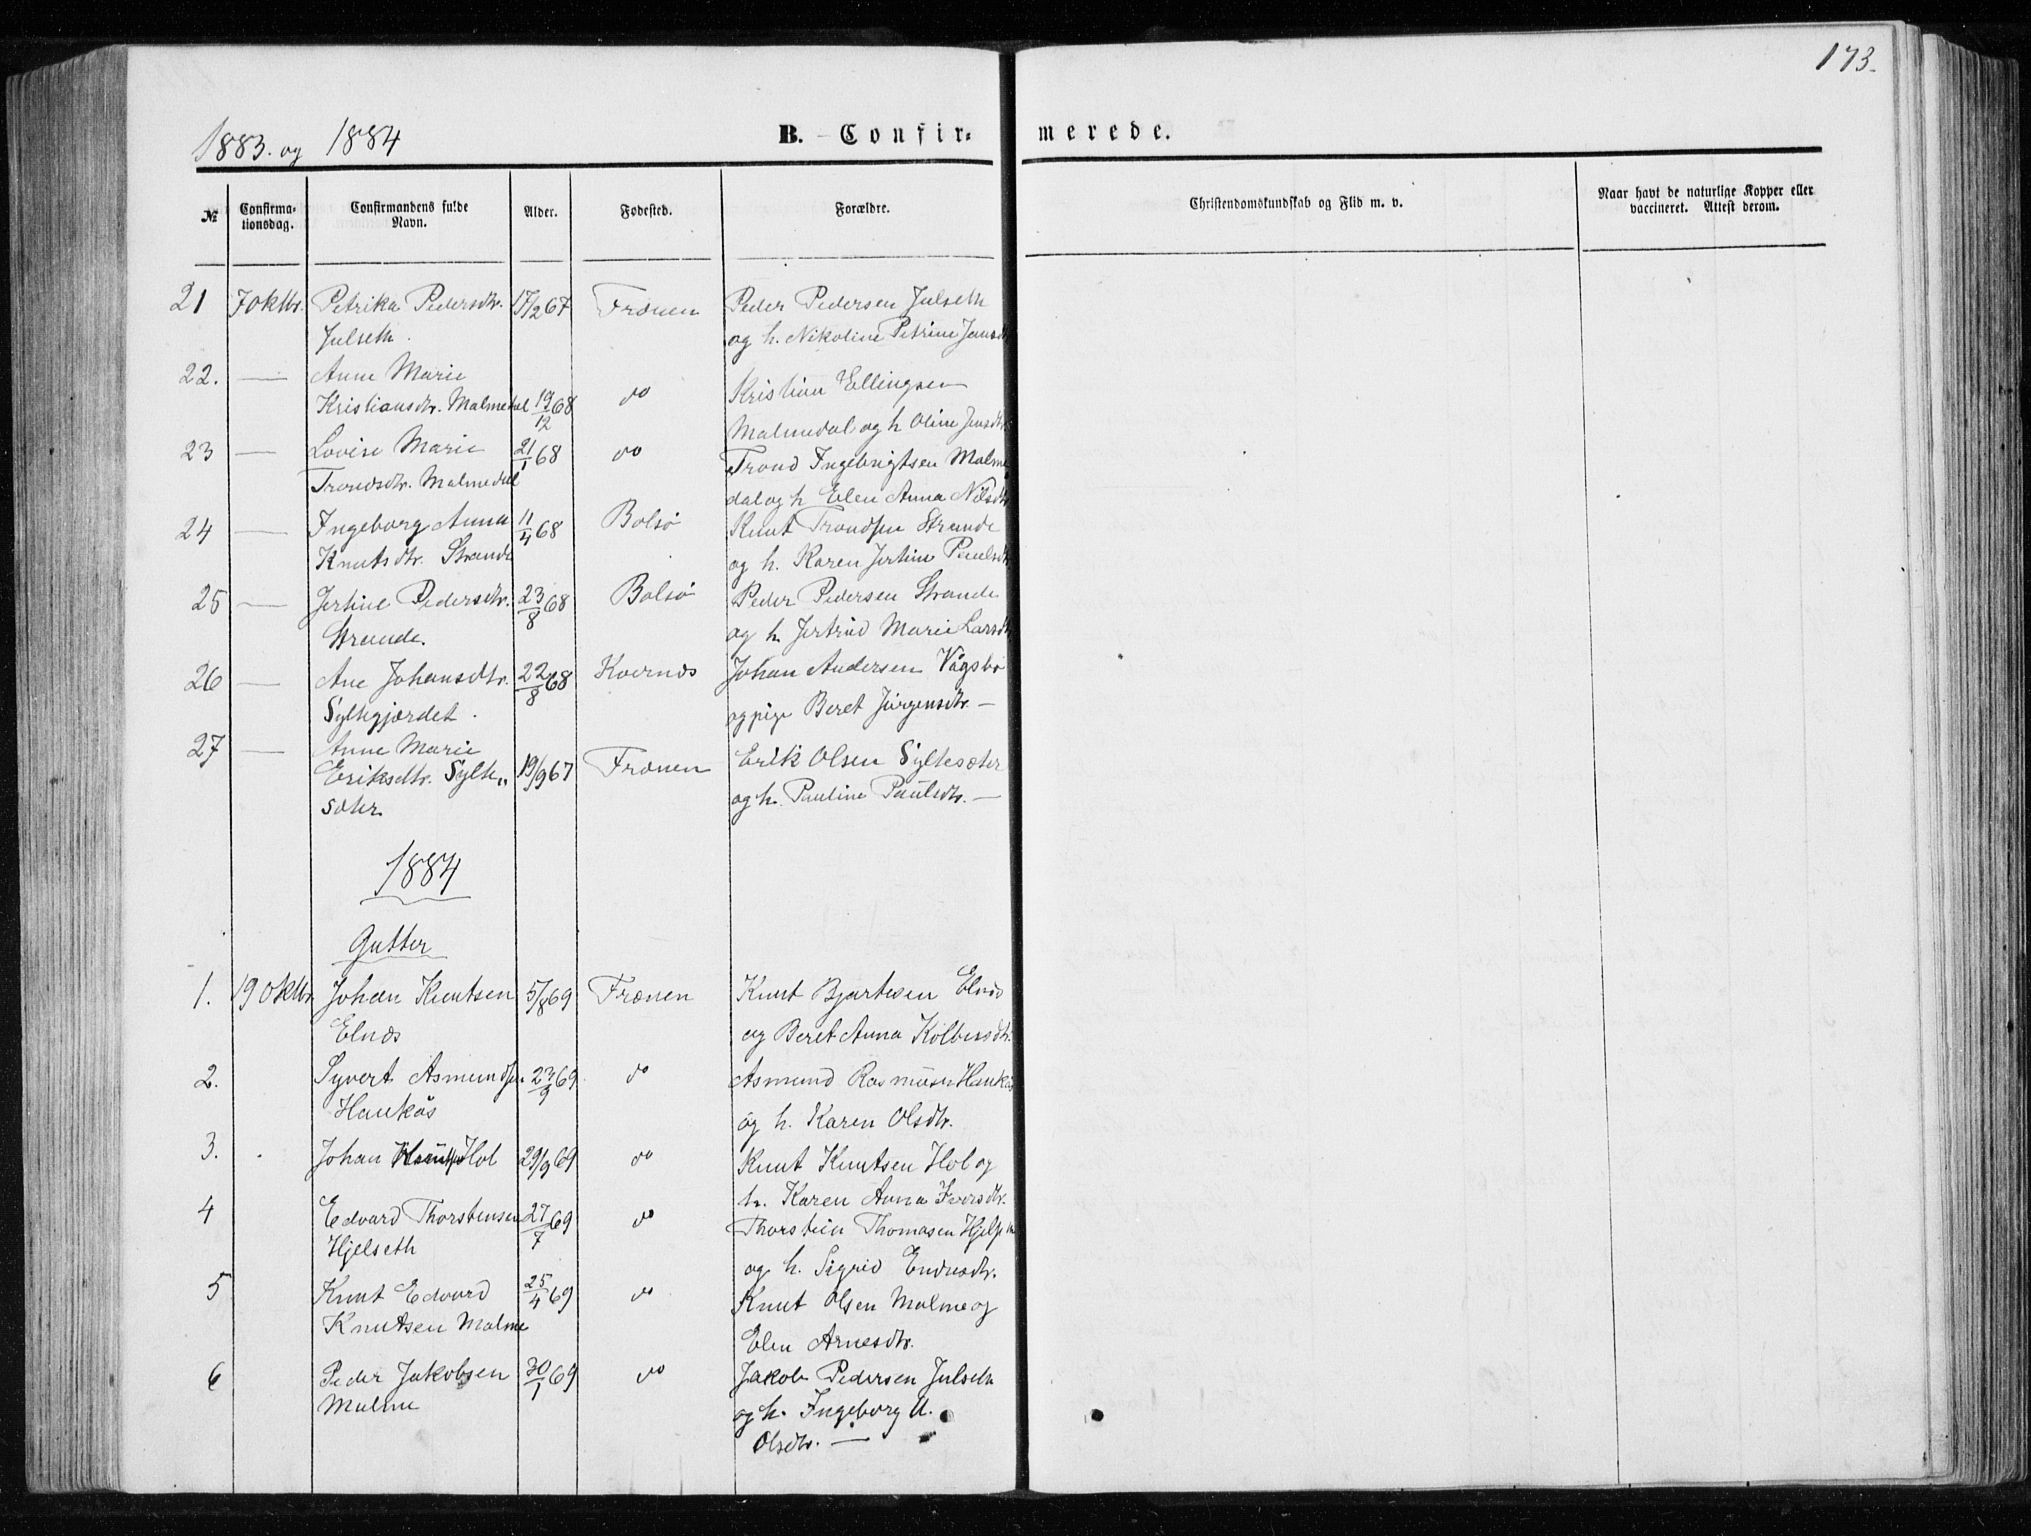 173.
1883. og 1884
B. Confirmerede.
№
Confirmationsdag.
Confirmandens fulde Navn.
Alder.
Fødested.
Forældre.
Christendomskundskab og Flid m. v.
Naar havt de naturlige Kopper eller vaccineret. Attest derom.
21 7 oktbr. Petrika Pedersdtr. 17/2 67 Frænen Peder Pedersen Julseth
Julseth. og h. Nikoline Petrine Jansdtr
22. — Anne Marie Kristian Ellingsen
Kristiansdtr. Malmedal 19/12 68 do Malmedal og h Oline Jensdtr
23 — Lovise Marie 21/1 68 do Trond Ingebrigtsen Malme
Trondsdtr. Malmedal dal og h Elen Anna Nilsdtr
24 — Ingeborg Anna 11/4 68 Bolsø Knut Trondsen Strande
Knutsdtr. Strande og h. Karen Jertine Paulsdtr
25 — Jertine Pedersdtr. 23/8 68 Bolsø Peder Pedersen Strande
Strande. og h. Jertrud Marie Larsdtr
26 — Ane Johansdtr. 22/8 68 Kvernæs Johan Andersen Vågsbø
Syltegjærdet. og pige Beret Jørgensdtr. —
27 — Anne Marie Erik Olsen Syltesæter
Eriksdtr. Sylte„ 19/9 67 Frænen og h. Pauline Paulsdtr. —
sæter
1884
Gutter
1. 19 oktbr. Johan Knutsen 5/8 69 Frænen Knut Bjartesen Elnæs
Elnæs og Beret Anna Kolbensdtr.
2. Syvert Asmundsen 23/9 69 do Asmund Rasmusen Haukås
Haukås og h. Karen Olsdtr.
3. Johan Knutsen Hol 29/9 69 do Knut Knutsen Hol og
h. Karen Anna Iversdtr.
4 Edvard Thorstensen 27/7 69 do Thorstein Thomasen Hjelset
Hjelseth og h. Sigrid Endresdtr.
5 Knut Edvard 25/4 69 do Knut Olsen Malme og
Knutsen Malme Elen Arnesdtr.
6 Peder Jakobsen 30/1 69 do Jakob Pedersen Julseth
Malme og h. Ingeborg A.
Olsdtr. —